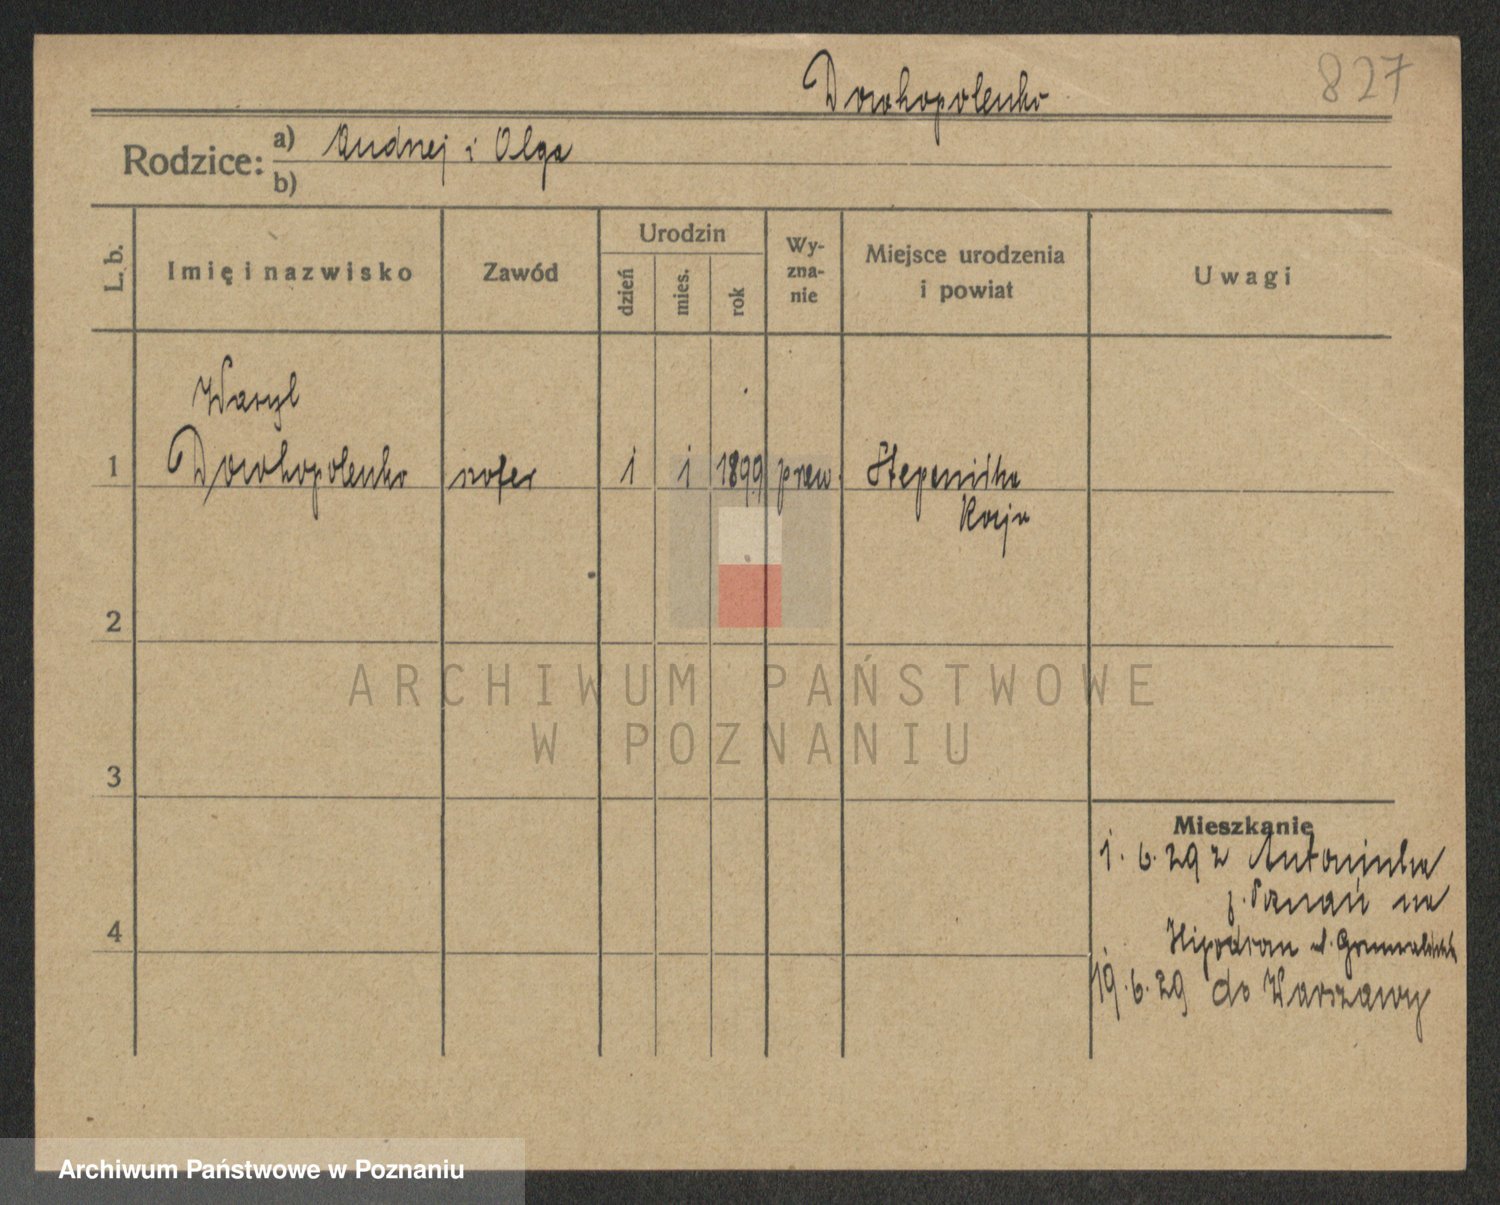 Dowhopolenko
827
Rodzice: a) Andrzej i Olga
b)
L. b.
Imię i nazwisko
Zawód
Urodzin
dzień
mies.
rok
Wy-
zna-
nie
Miejsce urodzenia
i powiat
Uwagi
Wasyl
1 Dowhopolenko szofer 1 1 1899 praw.
Rosja
2
3
4
ARCHIWUM PAŃSTWOWE
W POZNANIU
Mieszkanie
1. 6. 29 z Antoninka
p. Poznań na
Hipodrom ul. Grunwaldzka
19. 6. 29 do Warszawy
Archiwum Państwowe w Poznaniu